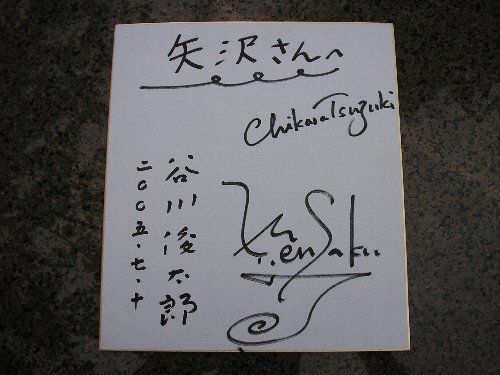 矢沢さんへ
Chikara Tsuzuki
KenSaku
谷川俊太郎
二〇〇五・七・十